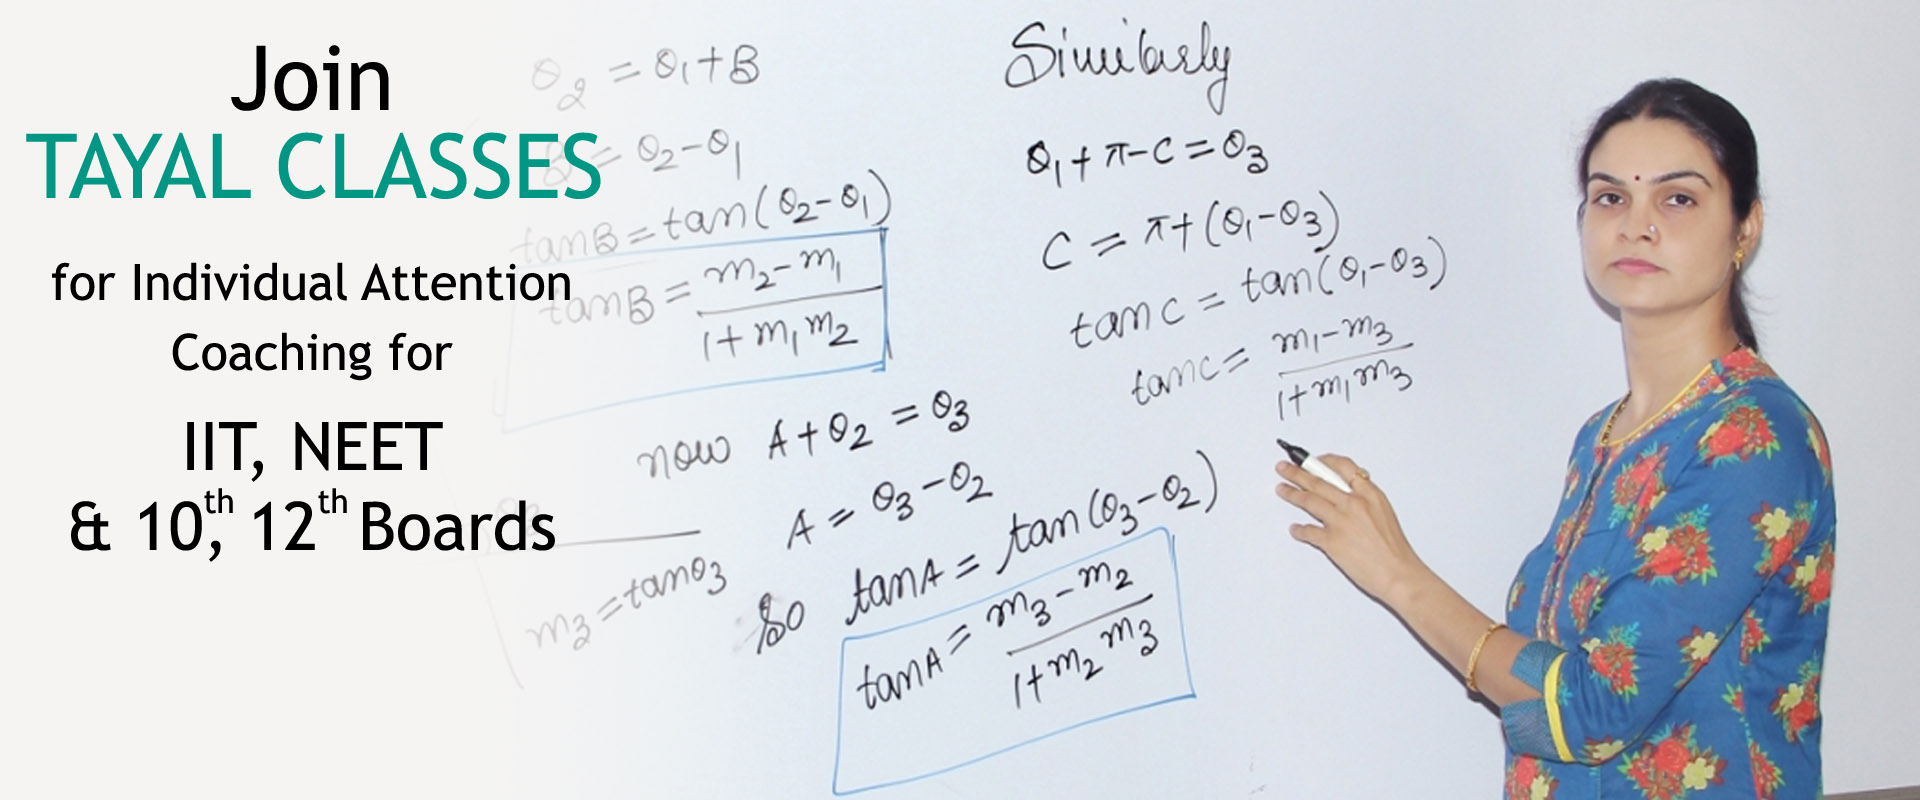 Join
TAYAL CLASSES
for Individual Attention
Coaching for
IIT, NEET
& 10th, 12th Boards
θ2 = θ1+B
B = θ2-θ1
tanB = tan(θ2-θ1)
tanB = m2-m1
1+m1m2
now A+θ2 = θ3
A = θ3-θ2
m3 = tanθ3
So tanA = tan(θ3-θ2)
tanA = m3-m2
1+m2m3
Similarly
θ1+π-C = θ3
C = π+(θ1-θ3)
tanC = tan(θ1-θ3)
tanC = m1-m3
1+m1m3